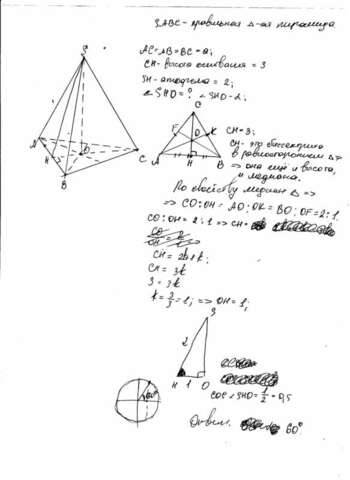 SABC - правильная Δ-ая пирамида
AC=AB=BC=a;
CH - высота основания = 3
SH - апофема = 2;
∠SHO = ?
S
A
H
B
O
C
C
F
O
K
A
H
B
CH = 3;
CH - это биссектриса
в равностороннем Δ ⇒
⇒ она ещё и высота,
и медиана.
По свойству медиан Δ ⇒
⇒ CO:OH = AO:OK = BO:OF = 2:1
CO:OH = 2:1 ⇒ CH =
CH = 2k+k;
CH = 3k
3 = 3k
k = 3/3 = 1; ⇒ OH = 1;
S
2
H 1 O
cos∠SHO = 1/2 = 0,5
60°
Ответ: 60°.